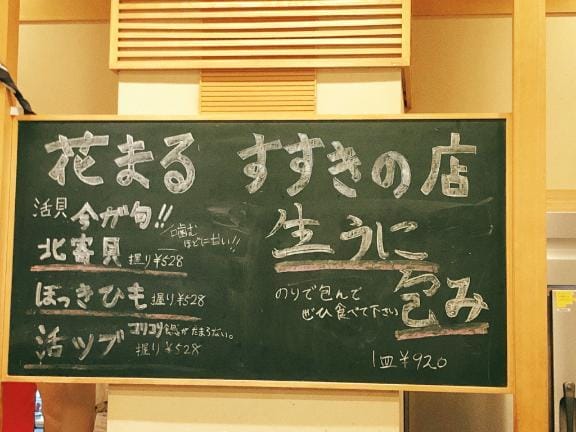 花まる すすきの店
活貝 今が旬!!
北寄貝 握り¥528
噛む
ほどに甘い!!
ほっきひも 握り¥528
活ツブ コリコリ食感がたまらない。
握り¥528
生うに
包み
のりで包んで
ぜひ食べて下さい
1皿¥920